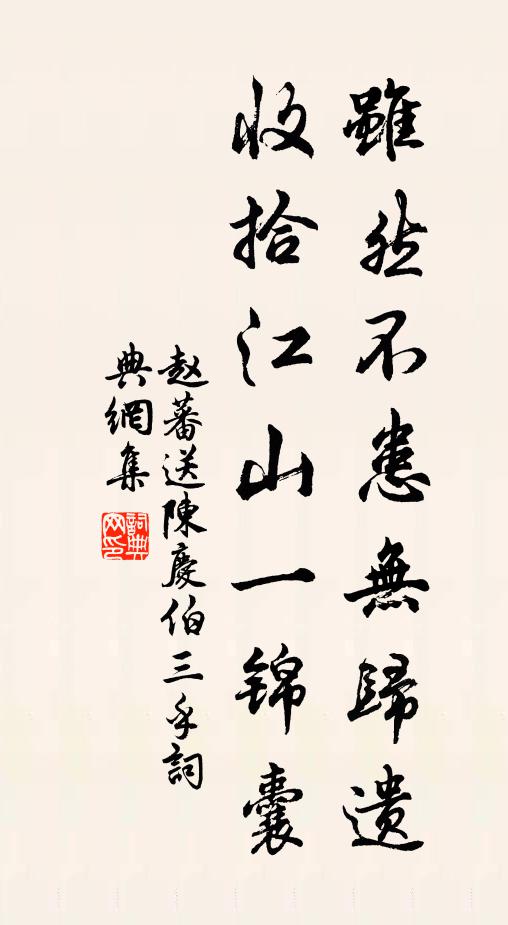 雖然不患無歸遺
收拾江山一錦囊
赵蕃送陳慶伯三手詞
典網集
詞典
网印